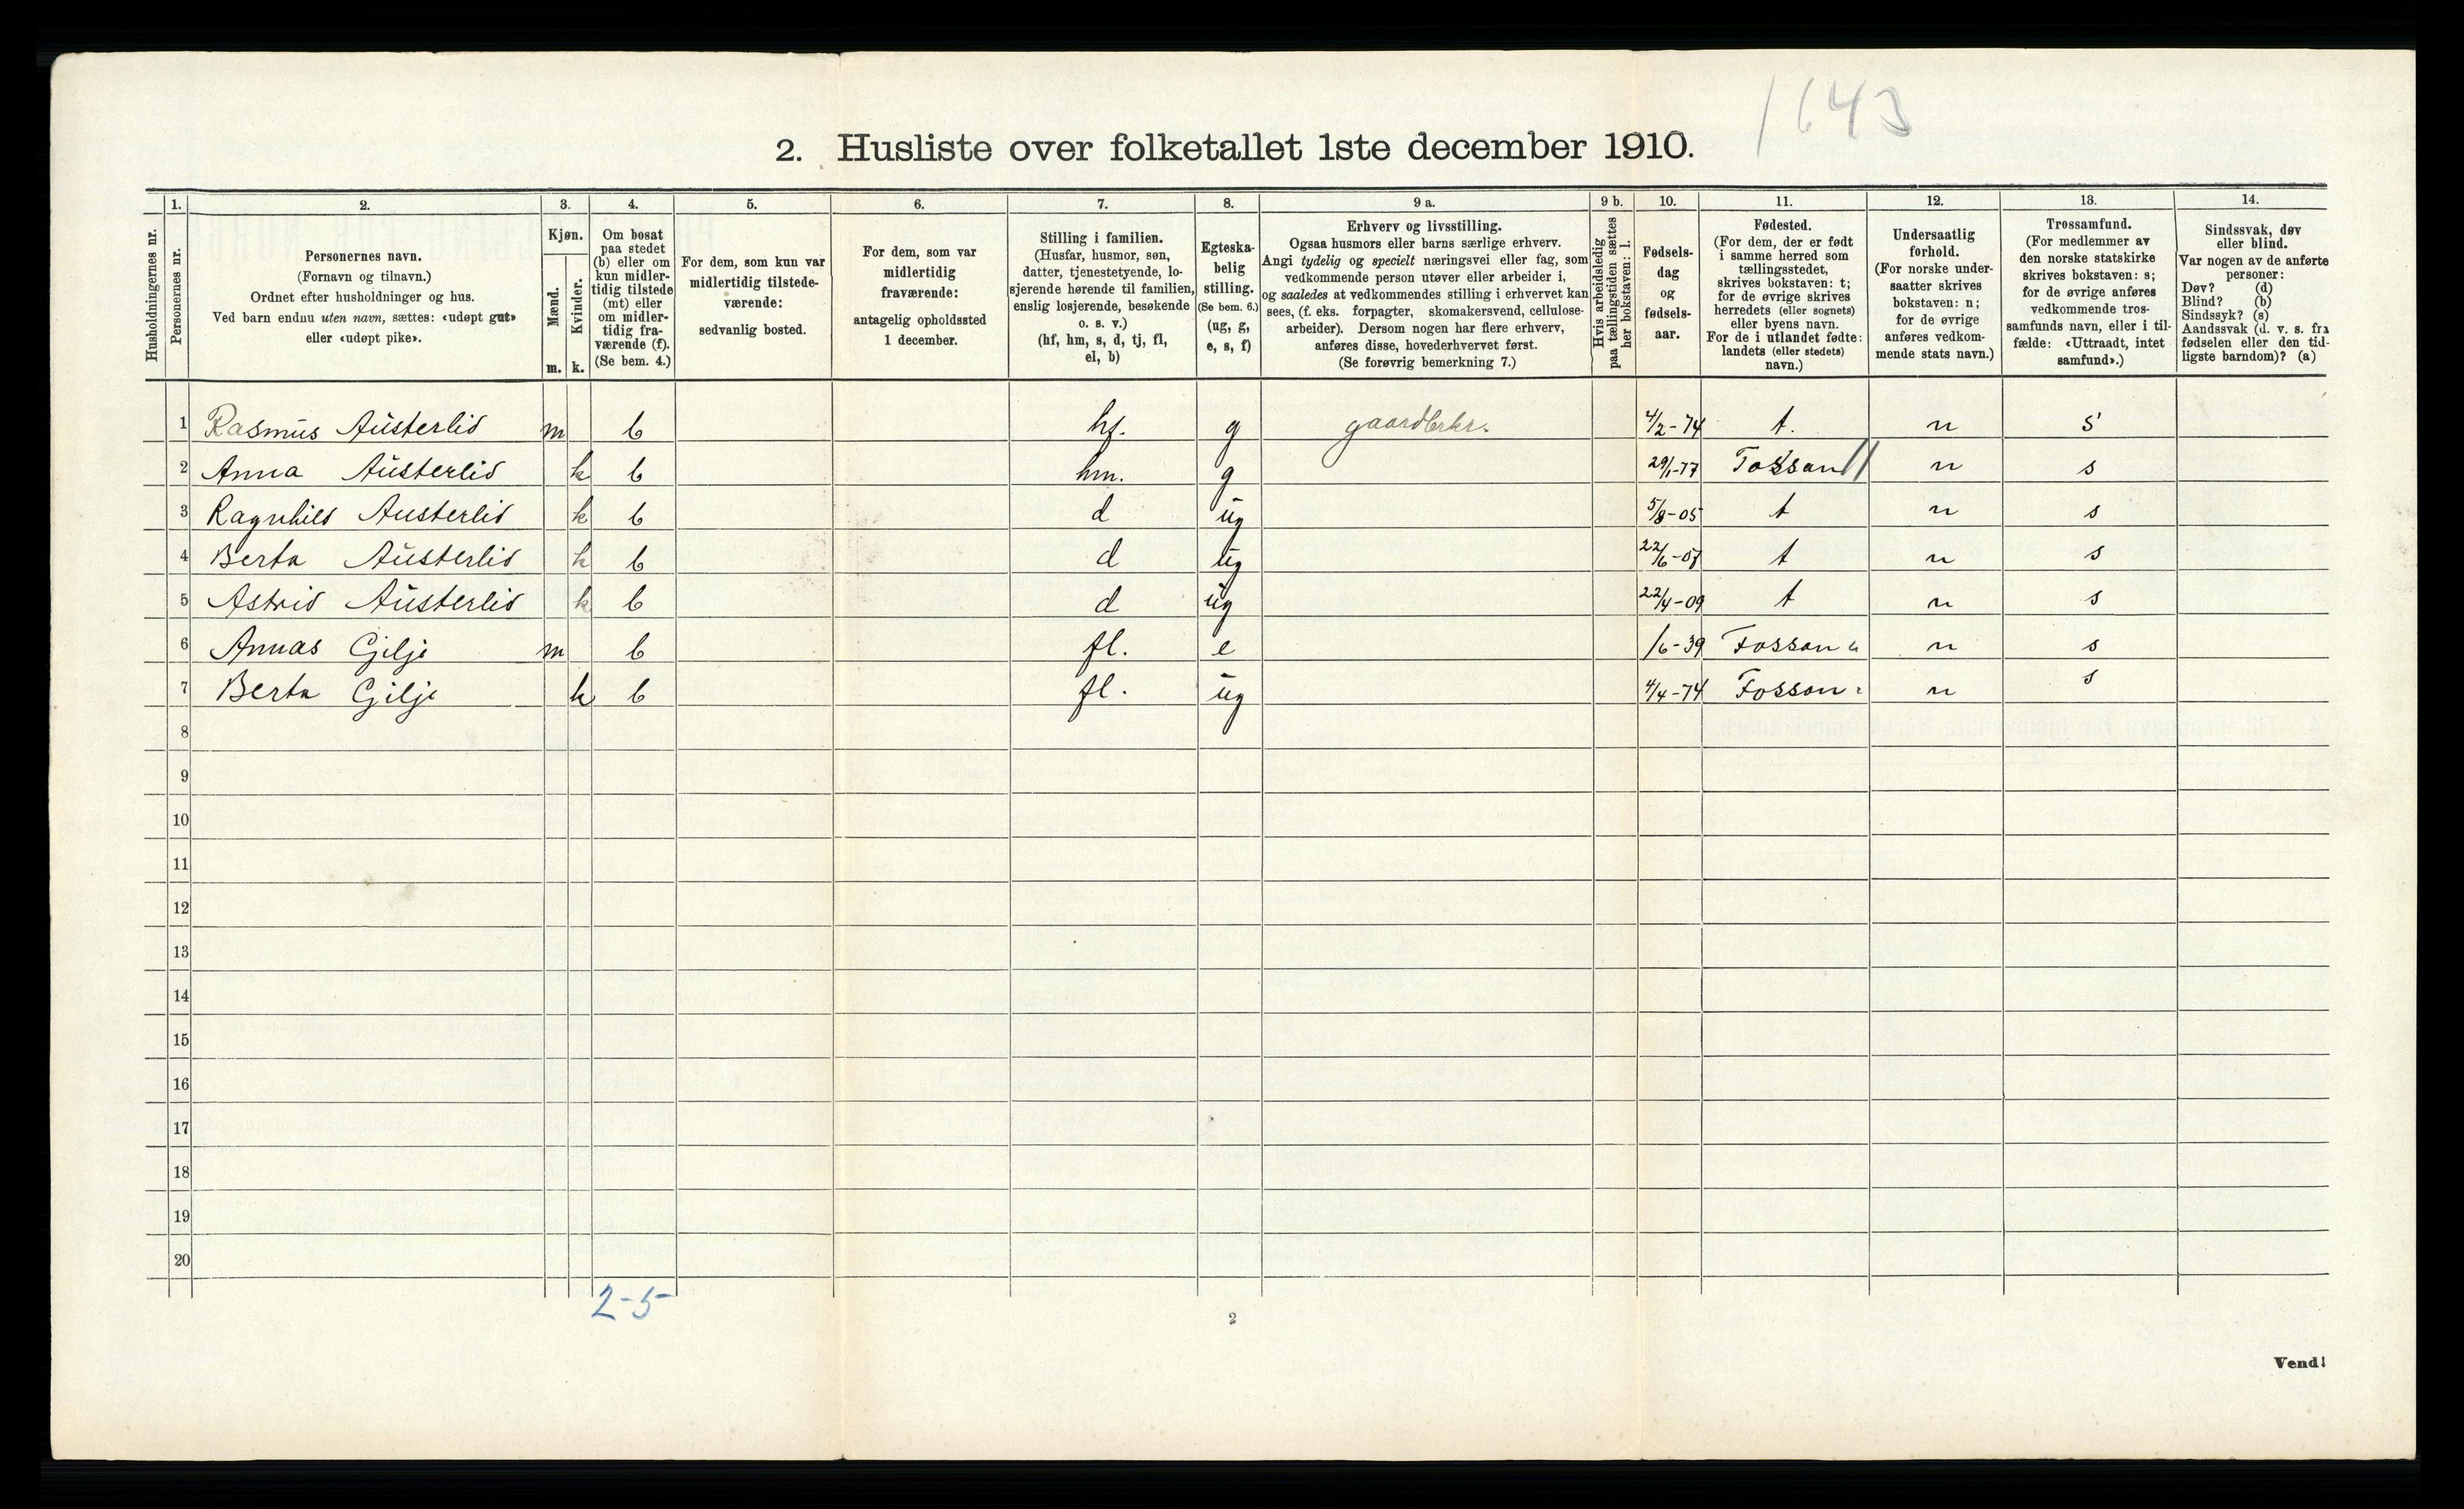 1643
2. Husliste over folketallet 1ste december 1910.
Husholdningernes nr.
1.
Personernes nr.
2.
Personernes navn.
(Fornavn og tilnavn.)
Ordnet efter husholdninger og hus.
Ved barn endnu uten navn, sættes: «udøpt gut»
eller «udøpt pike».
3.
Kjøn.
Mænd.
m.
Kvinder.
k.
4.
Om bosat
paa stedet
(b) eller om
kun midler-
tidig tilstede
(mt) eller
om midler-
tidig fra-
værende (f).
(Se bem. 4.)
5.
For dem, som kun var
midlertidig tilstede-
værende:
sedvanlig bosted.
6.
For dem, som var
midlertidig
fraværende:
antagelig opholdssted
1 december.
7.
Stilling i familien.
(Husfar, husmor, søn,
datter, tjenestetyende, lo-
sjerende hørende til familien,
enslig losjerende, besøkende
o. s. v.)
(hf, hm, s, d, tj, fl,
el, b)
8.
Egteska-
belig
stilling.
(Se bem. 6.)
(ug, g,
e, s, f)
9 a.
Erhverv og livsstilling.
Ogsaa husmors eller barns særlige erhverv.
Angi tydelig og specielt næringsvei eller fag, som
vedkommende person utøver eller arbeider i,
og saaledes at vedkommendes stilling i erhvervet kan
sees, (f. eks. forpagter, skomakersvend, cellulose-
arbeider). Dersom nogen har flere erhverv,
anføres disse, hovederhvervet først.
(Se forøvrig bemerkning 7.)
9 b.
Hvis arbeidsledig
paa tællingstiden sættes
her bokstaven: l.
10.
Fødsels-
dag
og
fødsels-
aar.
11.
Fødested.
(For dem, der er født
i samme herred som
tællingsstedet,
skrives bokstaven: t;
for de øvrige skrives
herredets (eller sognets)
eller byens navn.
For de i utlandet fødte:
landets (eller stedets)
navn.)
12.
Undersaatlig
forhold.
(For norske under-
saatter skrives
bokstaven: n;
for de øvrige
anføres vedkom-
mende stats navn.)
13.
Trossamfund.
(For medlemmer av
den norske statskirke
skrives bokstaven: s;
for de øvrige anføres
vedkommende tros-
samfunds navn, eller i til-
fælde: «Uttraadt, intet
samfund».)
14.
Sindssvak, døv
eller blind.
Var nogen av de anførte
personer:
Døv? (d)
Blind? (b)
Sindssyk? (s)
Aandssvak (d. v. s. fra
fødselen eller den tid-
ligste barndom)? (a)
1 Rasmus Austerlid m b hf. g gaardbrkr. 4/2-74 t. n s
2 Anna Austerlid k b hm. g 29/1-77 Fossan n s
3 Ragnhild Austerlid k b d ug 5/8-05 t n s
4 Berta Austerlid k b d ug 22/6-07 t n s
5 Astrid Austerlid k b d ug 22/4-09 t n s
6 Annas Gilje m b fl. e 1/6-39 Fossan n s
7 Berta Gilje k b fl. ug 4/4-74 Fossan n s
8
9
10
11
12
13
14
15
16
17
18
19
20
2-5
2
Vend!